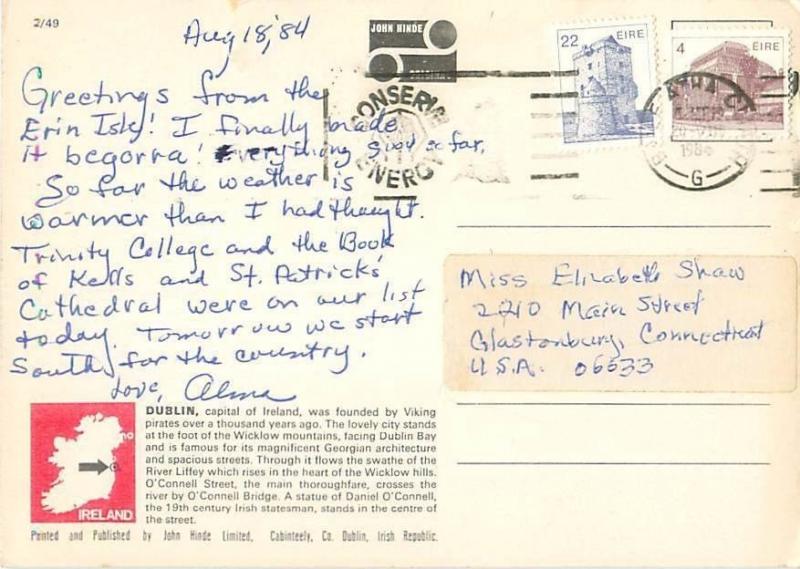 2/49
Aug 18, '84
JOHN HINDE
ORIGINAL
22 EIRE
4 EIRE
CONSERVE
ENERGY
ATHA C
1984
G
Greetings from the
Erin Isle! I finally made
it begorra! Everything good so far.
So far the weather is
warmer than I had thought.
Trinity College and the Book
of Kells and St. Patrick's
Cathedral were on our list
today. Tomorrow we start
South for the country.
Love, Alma
Miss Elizabeth Shaw
2210 Main Street
Glastonbury, Connecticut
U.S.A. 06633
IRELAND
DUBLIN, capital of Ireland, was founded by Viking
pirates over a thousand years ago. The lovely city stands
at the foot of the Wicklow mountains, facing Dublin Bay
and is famous for its magnificent Georgian architecture
and spacious streets. Through it flows the swathe of the
River Liffey which rises in the heart of the Wicklow hills.
O'Connell Street, the main thoroughfare, crosses the
river by O'Connell Bridge. A statue of Daniel O'Connell,
the 19th century Irish statesman, stands in the centre of
the street.
Printed and Published by John Hinde Limited, Cabinteely, Co. Dublin, Irish Republic.